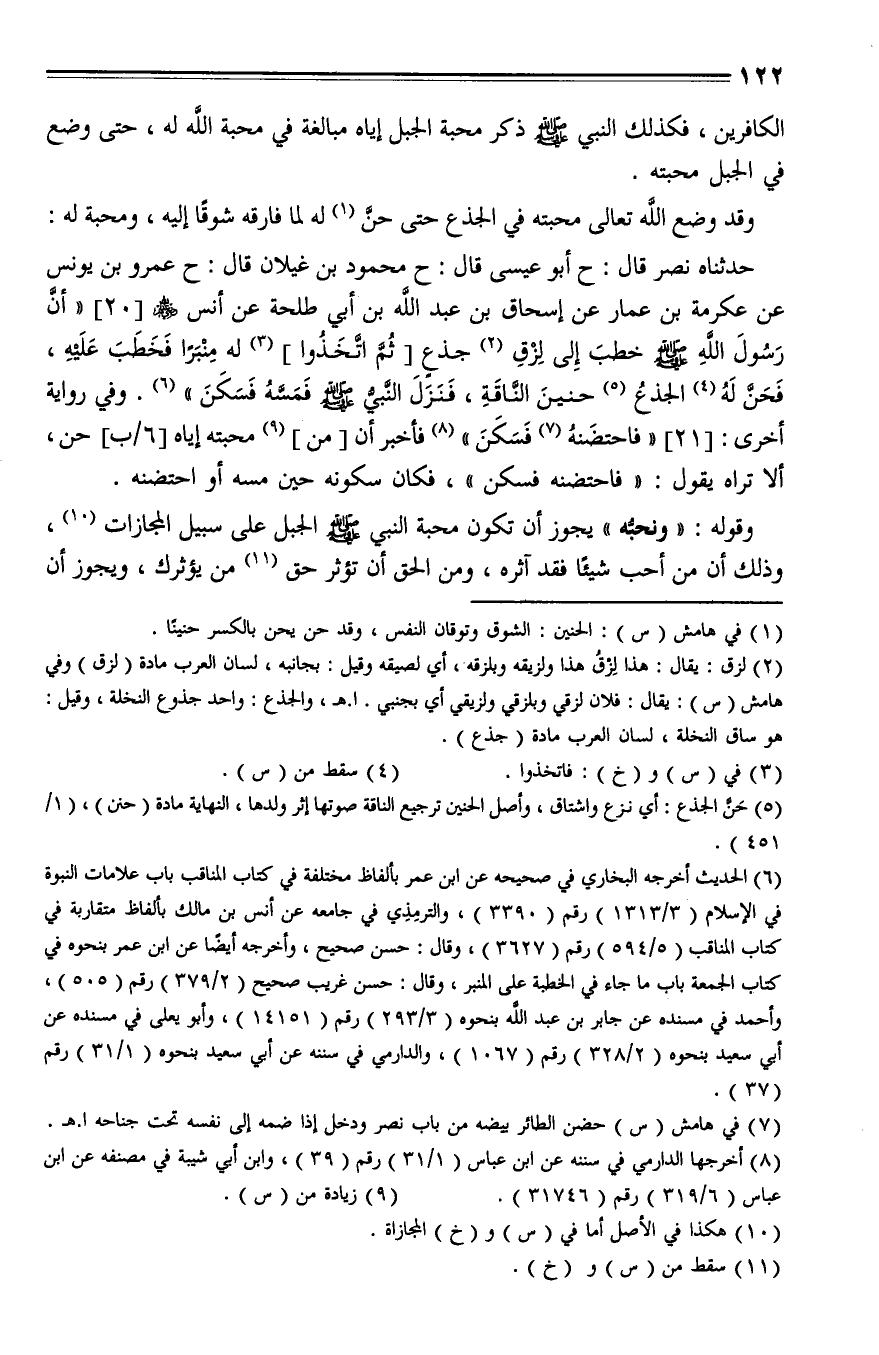 ١٢٢
الكافرين ، فكذلك النبي ﷺ ذكر محبة الجبل إياه مبالغة في محبة اللَّه له ، حتى وضع
في الجبل محبته .
وقد وضع اللَّه تعالى محبته في الجذع حتى حنَّ (١) له لما فارقه شوقًا إليه ، ومحبة له :
حدثناه نصر قال : ح أبو عيسى قال : ح محمود بن غيلان قال : ح عمرو بن يونس
عن عكرمة بن عمار عن إسحاق بن عبد اللَّه بن أبي طلحة عن أنس ﷺ [٢٠] « أنَّ
رَسُولَ اللَّهِ ﷺ خطبَ إِلى لِزْقِ (٢) جذعٍ [ ثُمَّ اتَّخَذُوا ] (٣) له مِنْبَرًا فَخَطَبَ عَلَيْهِ ،
فَحَنَّ لَهُ (٤) الجذعُ (٥) حنينَ النَّاقَةِ ، فَنَزَلَ النَّبيُّ ﷺ فَمَسَّهُ فَسَكَنَ » (٦) . وفي رواية
أخرى : [٢١] « فاحتضَنهُ (٧) فَسَكَنَ » (٨) فأخبر أن [ من ] (٩) محبته إياه [٦/ب] حن ،
ألا تراه يقول : « فاحتضنه فسكن » ، فكان سكونه حين مسه أو احتضنه .
وقوله : « ونحبُّه » يجوز أن تكون محبة النبي ﷺ الجبل على سبيل المجازات (١٠) ،
وذلك أن من أحب شيئًا فقد آثره ، ومن الحق أن تؤثر حق (١١) من يؤثرك ، ويجوز أن
(١) في هامش ( س ) : الحنين : الشوق وتوقان النفس ، وقد حن يحن بالكسر حنينًا .
(٢) لزق : يقال : هذا لِزْقُ هذا ولزيقه وبلزقه ، أي لصيقه وقيل : بجانبه ، لسان العرب مادة ( لزق ) وفي
هامش ( س ) : يقال : فلان لزقي وبلزقي ولزيقي أي بجنبي . ا.هـ ، والجذع : واحد جذوع النخلة ، وقيل :
هو ساق النخلة ، لسان العرب مادة ( جذع ) .
(٣) في ( س ) و ( خ ) : فاتخذوا . (٤) سقط من ( س ) .
(٥) حَنَّ الجذع : أي نزع واشتاق ، وأصل الحنين ترجيع الناقة صوتها إثر ولدها ، النهاية مادة ( حنن ) ، ( ١/
٤٥١ ) .
(٦) الحديث أخرجه البخاري في صحيحه عن ابن عمر بألفاظ مختلفة في كتاب المناقب باب علامات النبوة
في الإسلام ( ١٣١٣/٣ ) رقم ( ٣٣٩٠ ) ، والترمِذي في جامعه عن أنس بن مالك بألفاظ متقاربة في
كتاب المناقب ( ٥٩٤/٥ ) رقم ( ٣٦٢٧ ) ، وقال : حسن صحيح ، وأخرجه أيضًا عن ابن عمر بنحوه في
كتاب الجمعة باب ما جاء في الخطبة على المنبر ، وقال : حسن غريب صحيح ( ٣٧٩/٢ ) رقم ( ٥٠٥ ) ،
وأحمد في مسنده عن جابر بن عبد اللَّه بنحوه ( ٢٩٣/٣ ) رقم ( ١٤١٥١ ) ، وأبو يعلى في مسنده عن
أبي سعيد بنحوه ( ٣٢٨/٢ ) رقم ( ١٠٦٧ ) ، والدارمي في سننه عن أبي سعيد بنحوه ( ٣١/١ ) رقم
( ٣٧ ) .
(٧) في هامش ( س ) حضن الطائر بيضه من باب نصر ودخل إذا ضمه إلى نفسه تحت جناحه ا.هـ .
(٨) أخرجها الدارمي في سننه عن ابن عباس ( ٣١/١ ) رقم ( ٣٩ ) ، وابن أبي شيبة في مصنفه عن ابن
عباس ( ٣١٩/٦ ) رقم ( ٣١٧٤٦ ) . (٩) زيادة من ( س ) .
(١٠) هكذا في الأصل أما في ( س ) و ( خ ) المجازاة .
(١١) سقط من ( س ) و ( خ ) .